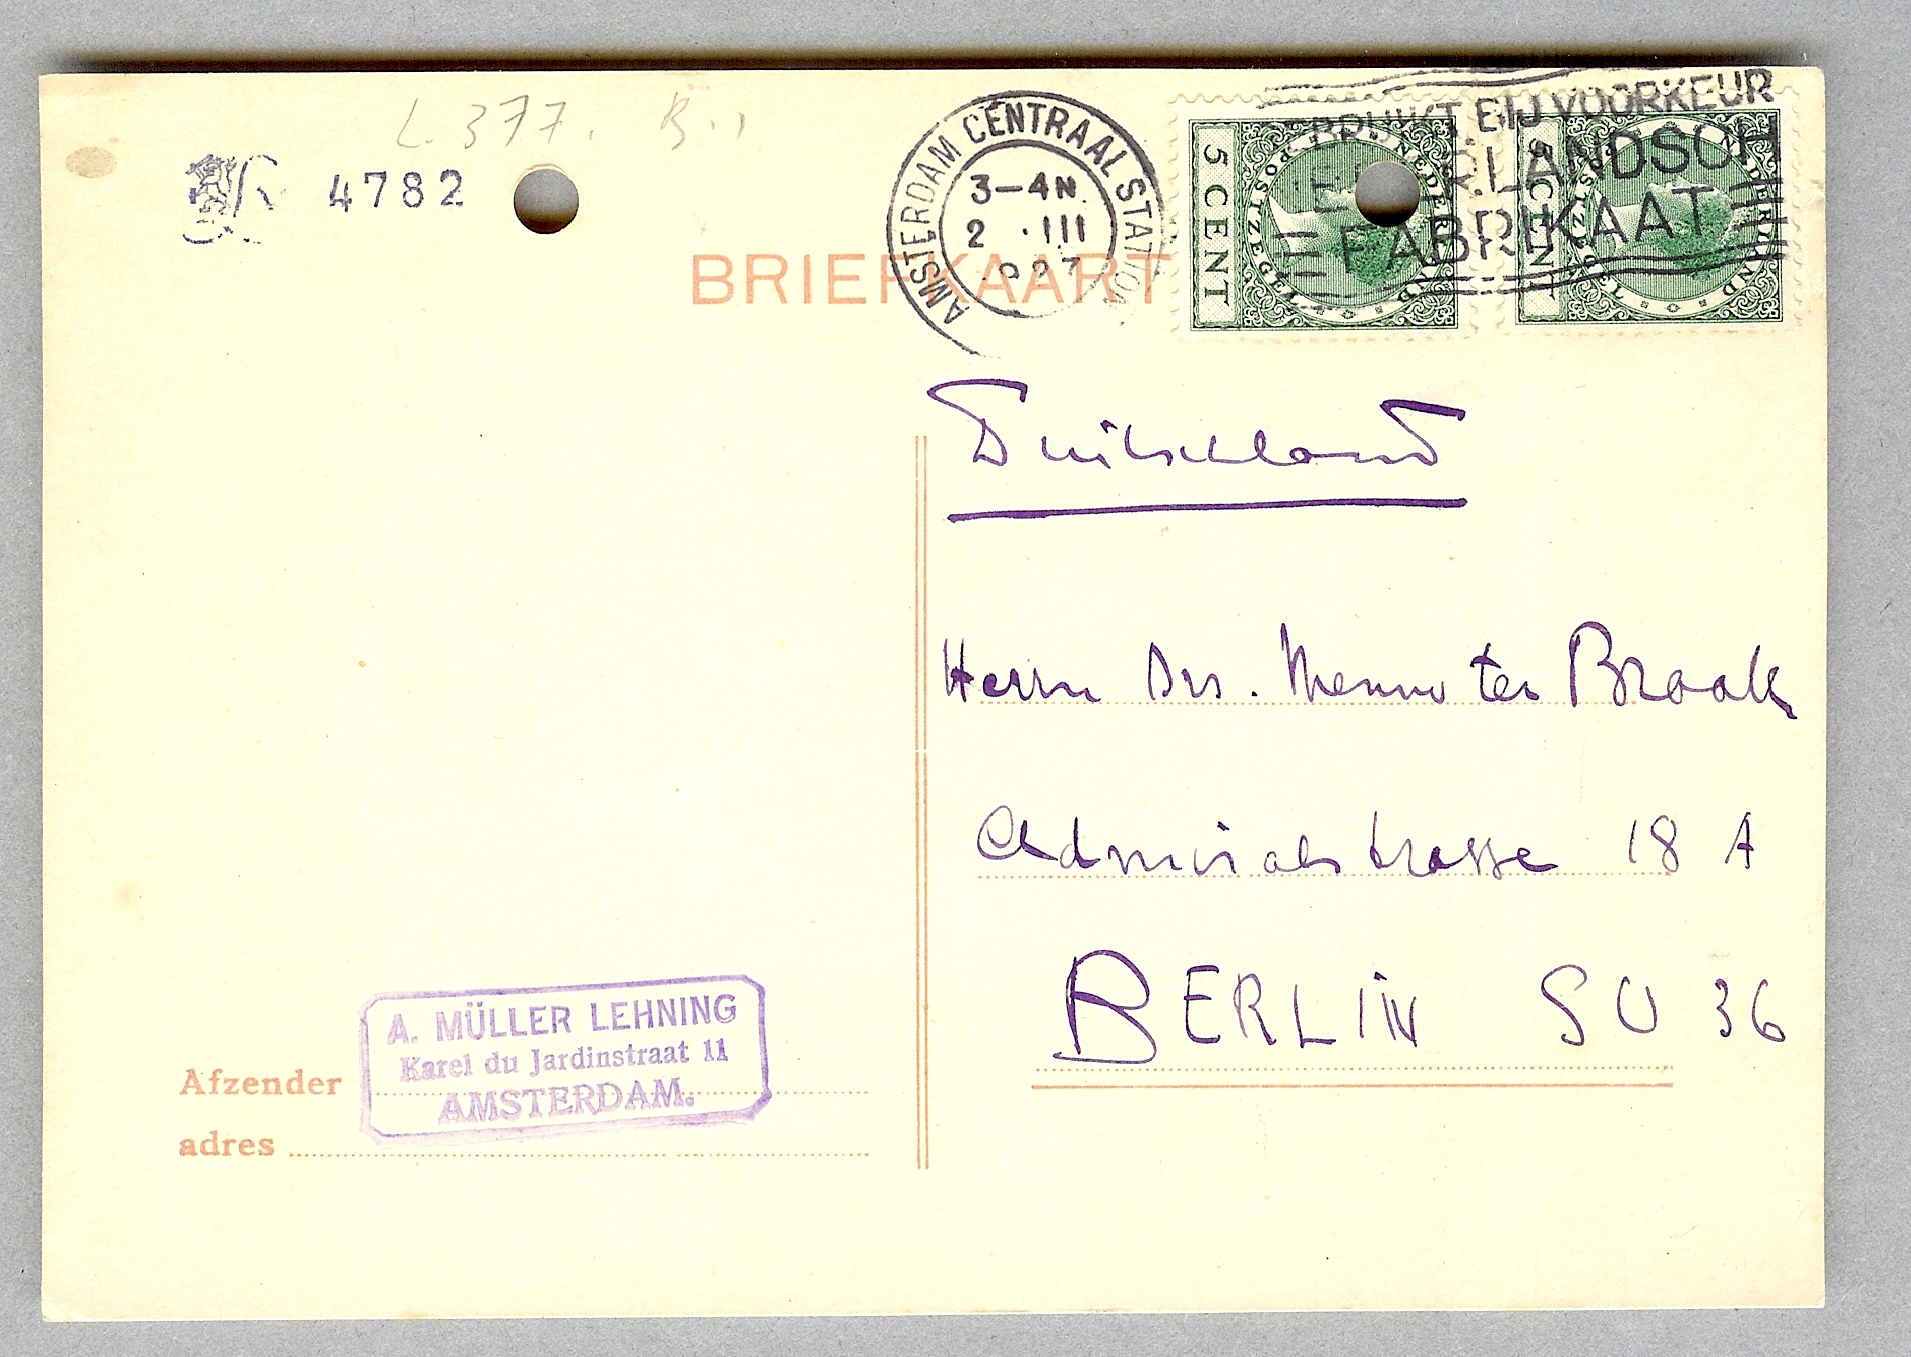 L.377. B.1
4782
BRIEFKAART
AMSTERDAM CENTRAAL STATION
3–4N.
2 .III
1927
GEBRUIKT BIJ VOORKEUR
NEDERLANDSCH
FABRIKAAT
5 CENT
NEDERLAND
POSTZEGEL
5 CENT
NEDERLAND
POSTZEGEL
Duitschland
Herrn Drs. Menno ter Braak
Admiralstrasse 18 A
BERLIN SO 36
A. MÜLLER LEHNING
Karel du Jardinstraat 11
AMSTERDAM.
Afzender
adres